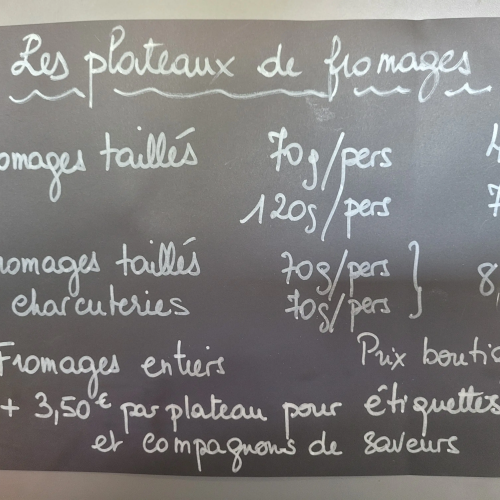 Les plateaux de fromages
omages taillés 70g/pers 4
120g/pers 7
romages taillés 70g/pers } 8,
charcuteries 70g/pers
Fromages entiers Prix boutic
+ 3,50€ par plateau pour étiquettes
et compagnons de saveurs